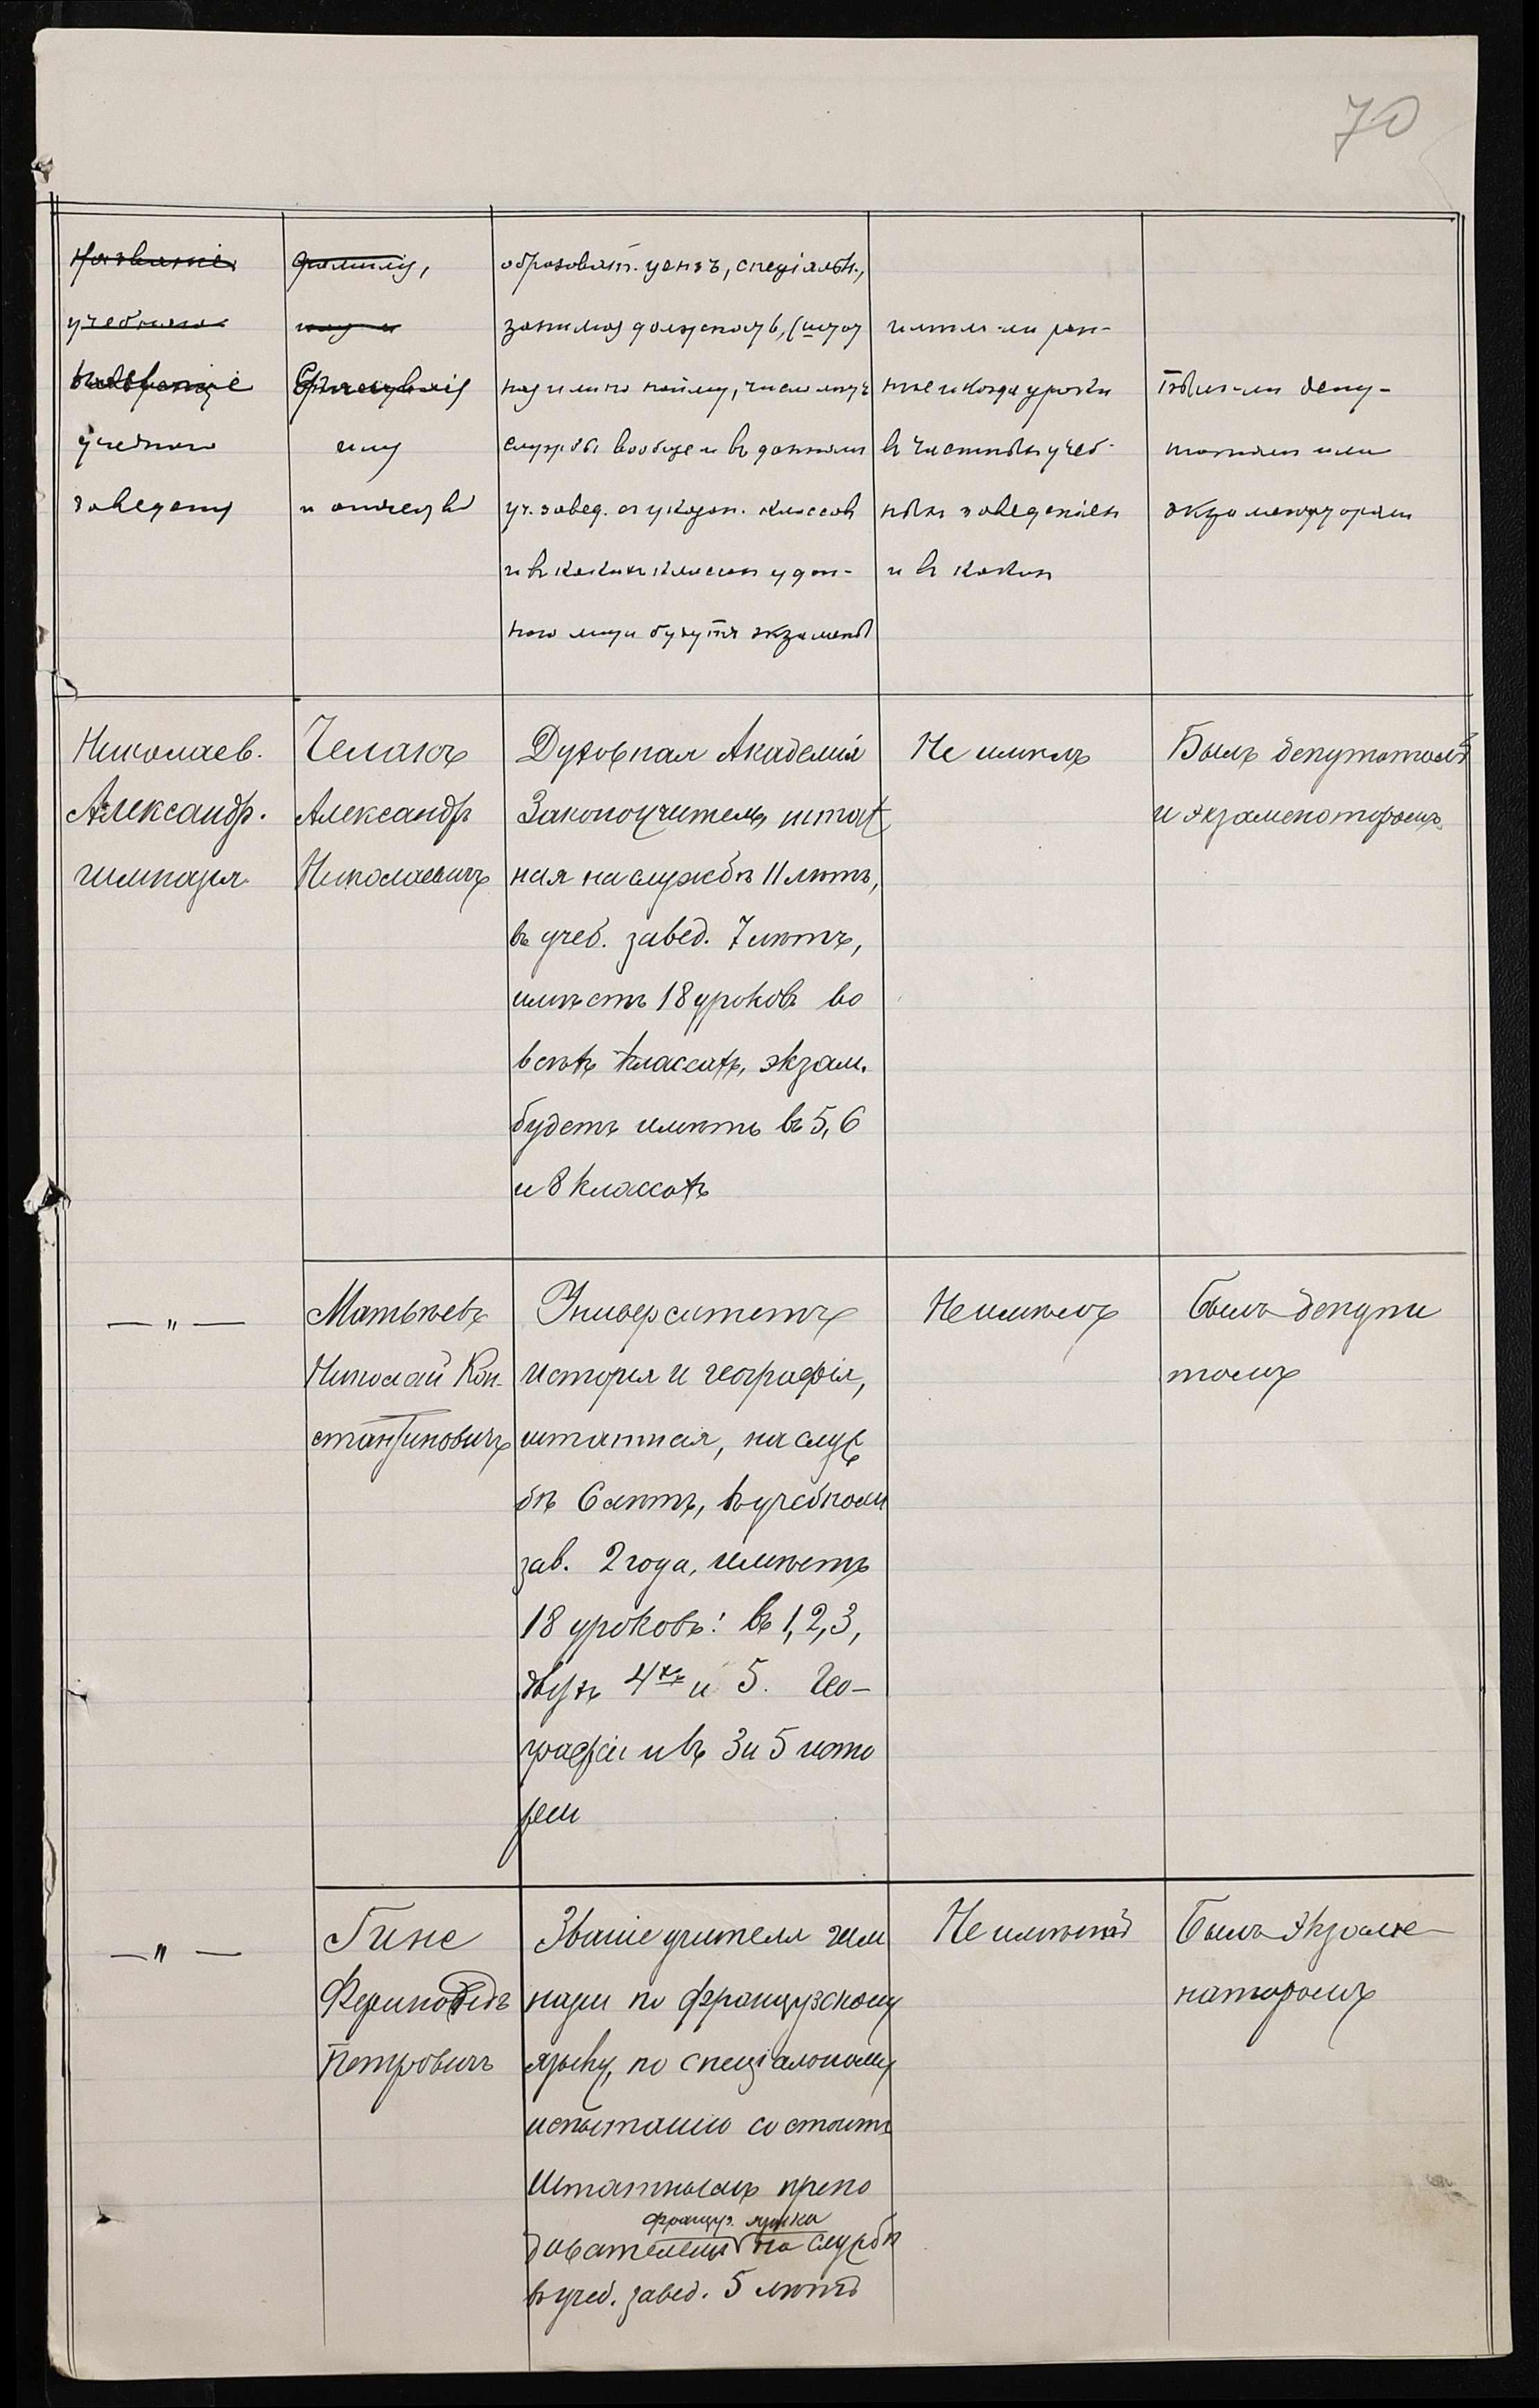 70
Названіе
учебнаго
учебнаго
заведенія
фамилія,
имя и
имя
и отчество
образоват. цензъ, спеціальн.,
занимая должность, (штат
ная или по найму, число лѣтъ
службы вообще и въ данномъ
уч. завед. съ указан. классовъ
и въ какихъ классахъ у дан-
ного лица будутъ экзамены
имѣлъ-ли ран-
ѣе и когда уроки
въ частныхъ учеб-
ныхъ заведеніяхъ
и въ какихъ
Былъ-ли депу-
татомъ или
экзаменаторомъ
Николаев.
Александр.
гимназія
Александръ
Николаевичъ
Духовная Академія
Законоучитель штат
ная на службѣ 11 лѣтъ,
въ учеб. завед. 7 лѣтъ,
имѣетъ 18 уроковъ во
всѣхъ классахъ, экзам.
будетъ имѣть въ 5, 6
и 8 классахъ
Не имѣлъ
Былъ депутатомъ
и экзаменаторомъ
— " —
Матвѣевъ
Николай Кон-
стантиновичъ
Университетъ
исторія и географія,
штатная, на служ
бѣ 6 лѣтъ, въ учебномъ
зав. 2 года, имѣетъ
18 уроковъ: въ 1, 2, 3,
двухъ 4хъ и 5. Гео-
графіи и въ 3 и 5 исто
ріи
Не имѣлъ
Былъ депута
томъ
— " —
Гине
Петровичъ
Званіе учителя гим
назіи по французскому
языку, по спеціальному
испытанію состоитъ
Штатнымъ препо
француз. языка
давателемъ на службѣ
въ учеб. завед. 5 лѣтъ
Не имѣетъ
Былъ экзаме-
наторомъ